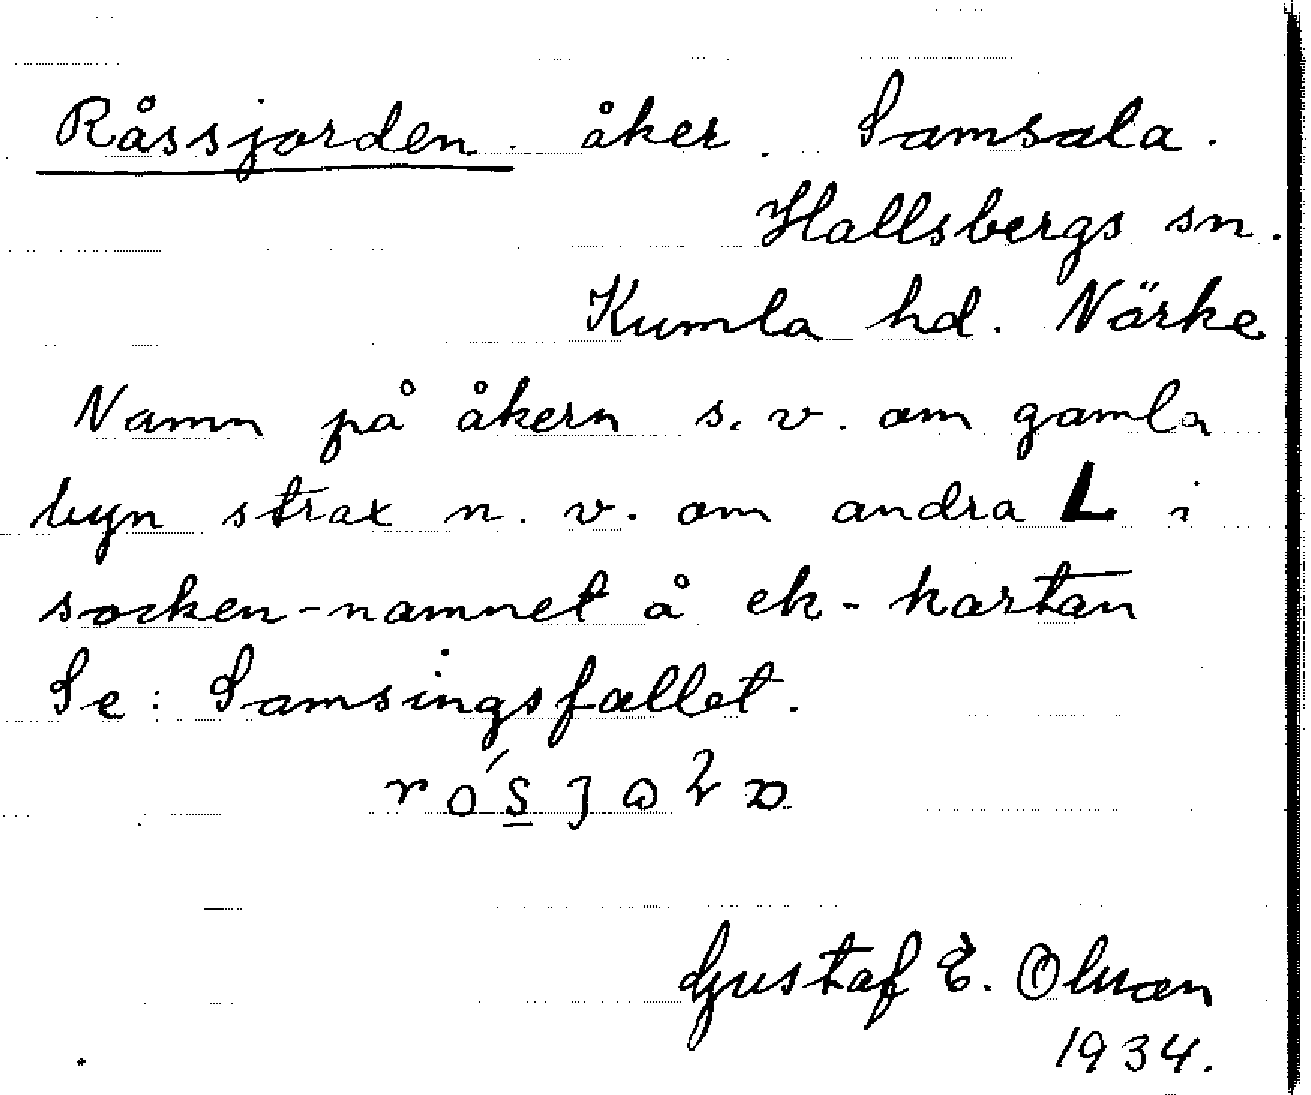 Råssjorden åker. Samsala.
Hallsbergs sn.
Kumla hd. Närke
Namn på åkern s.v. om gamla
byn strax n.v. om andra L i
socken-namnet å ek-kartan
Se: Samsingsfallet.
Gustaf E. Olsson
1934.